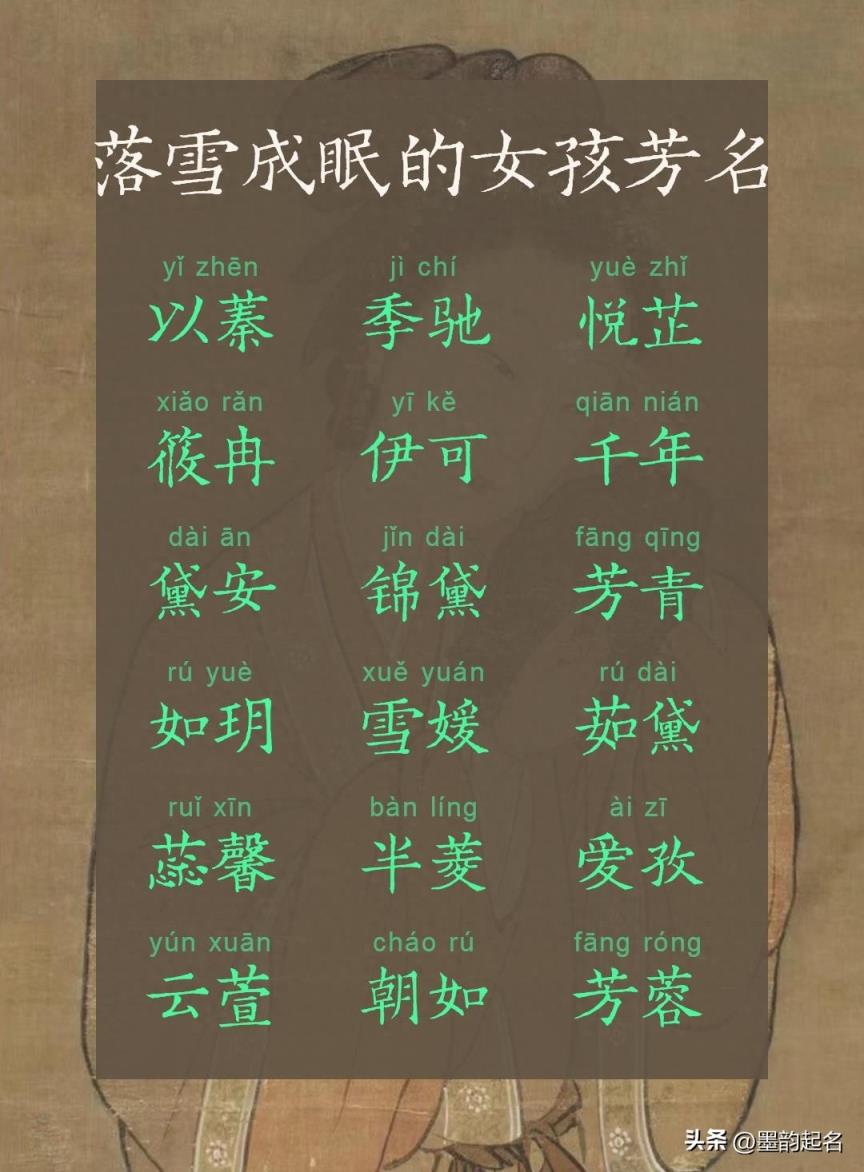 落雪成眠的女孩芳名
yǐ zhēn jì chí yuè zhǐ
以蓁 季驰 悦芷
xiǎo rǎn yī kě qiān nián
筱冉 伊可 千年
dài ān jǐn dài fāng qīng
黛安 锦黛 芳青
rú yuè xuě yuán rú dài
如玥 雪媛 茹黛
ruǐ xīn bàn líng ài zī
蕊馨 半菱 爱孜
yún xuān cháo rú fāng róng
云萱 朝如 芳蓉
头条 @墨韵起名